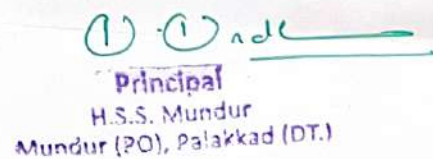 Principal
H.S.S. Mundur
Mundur (PO), Palakkad (DT.)